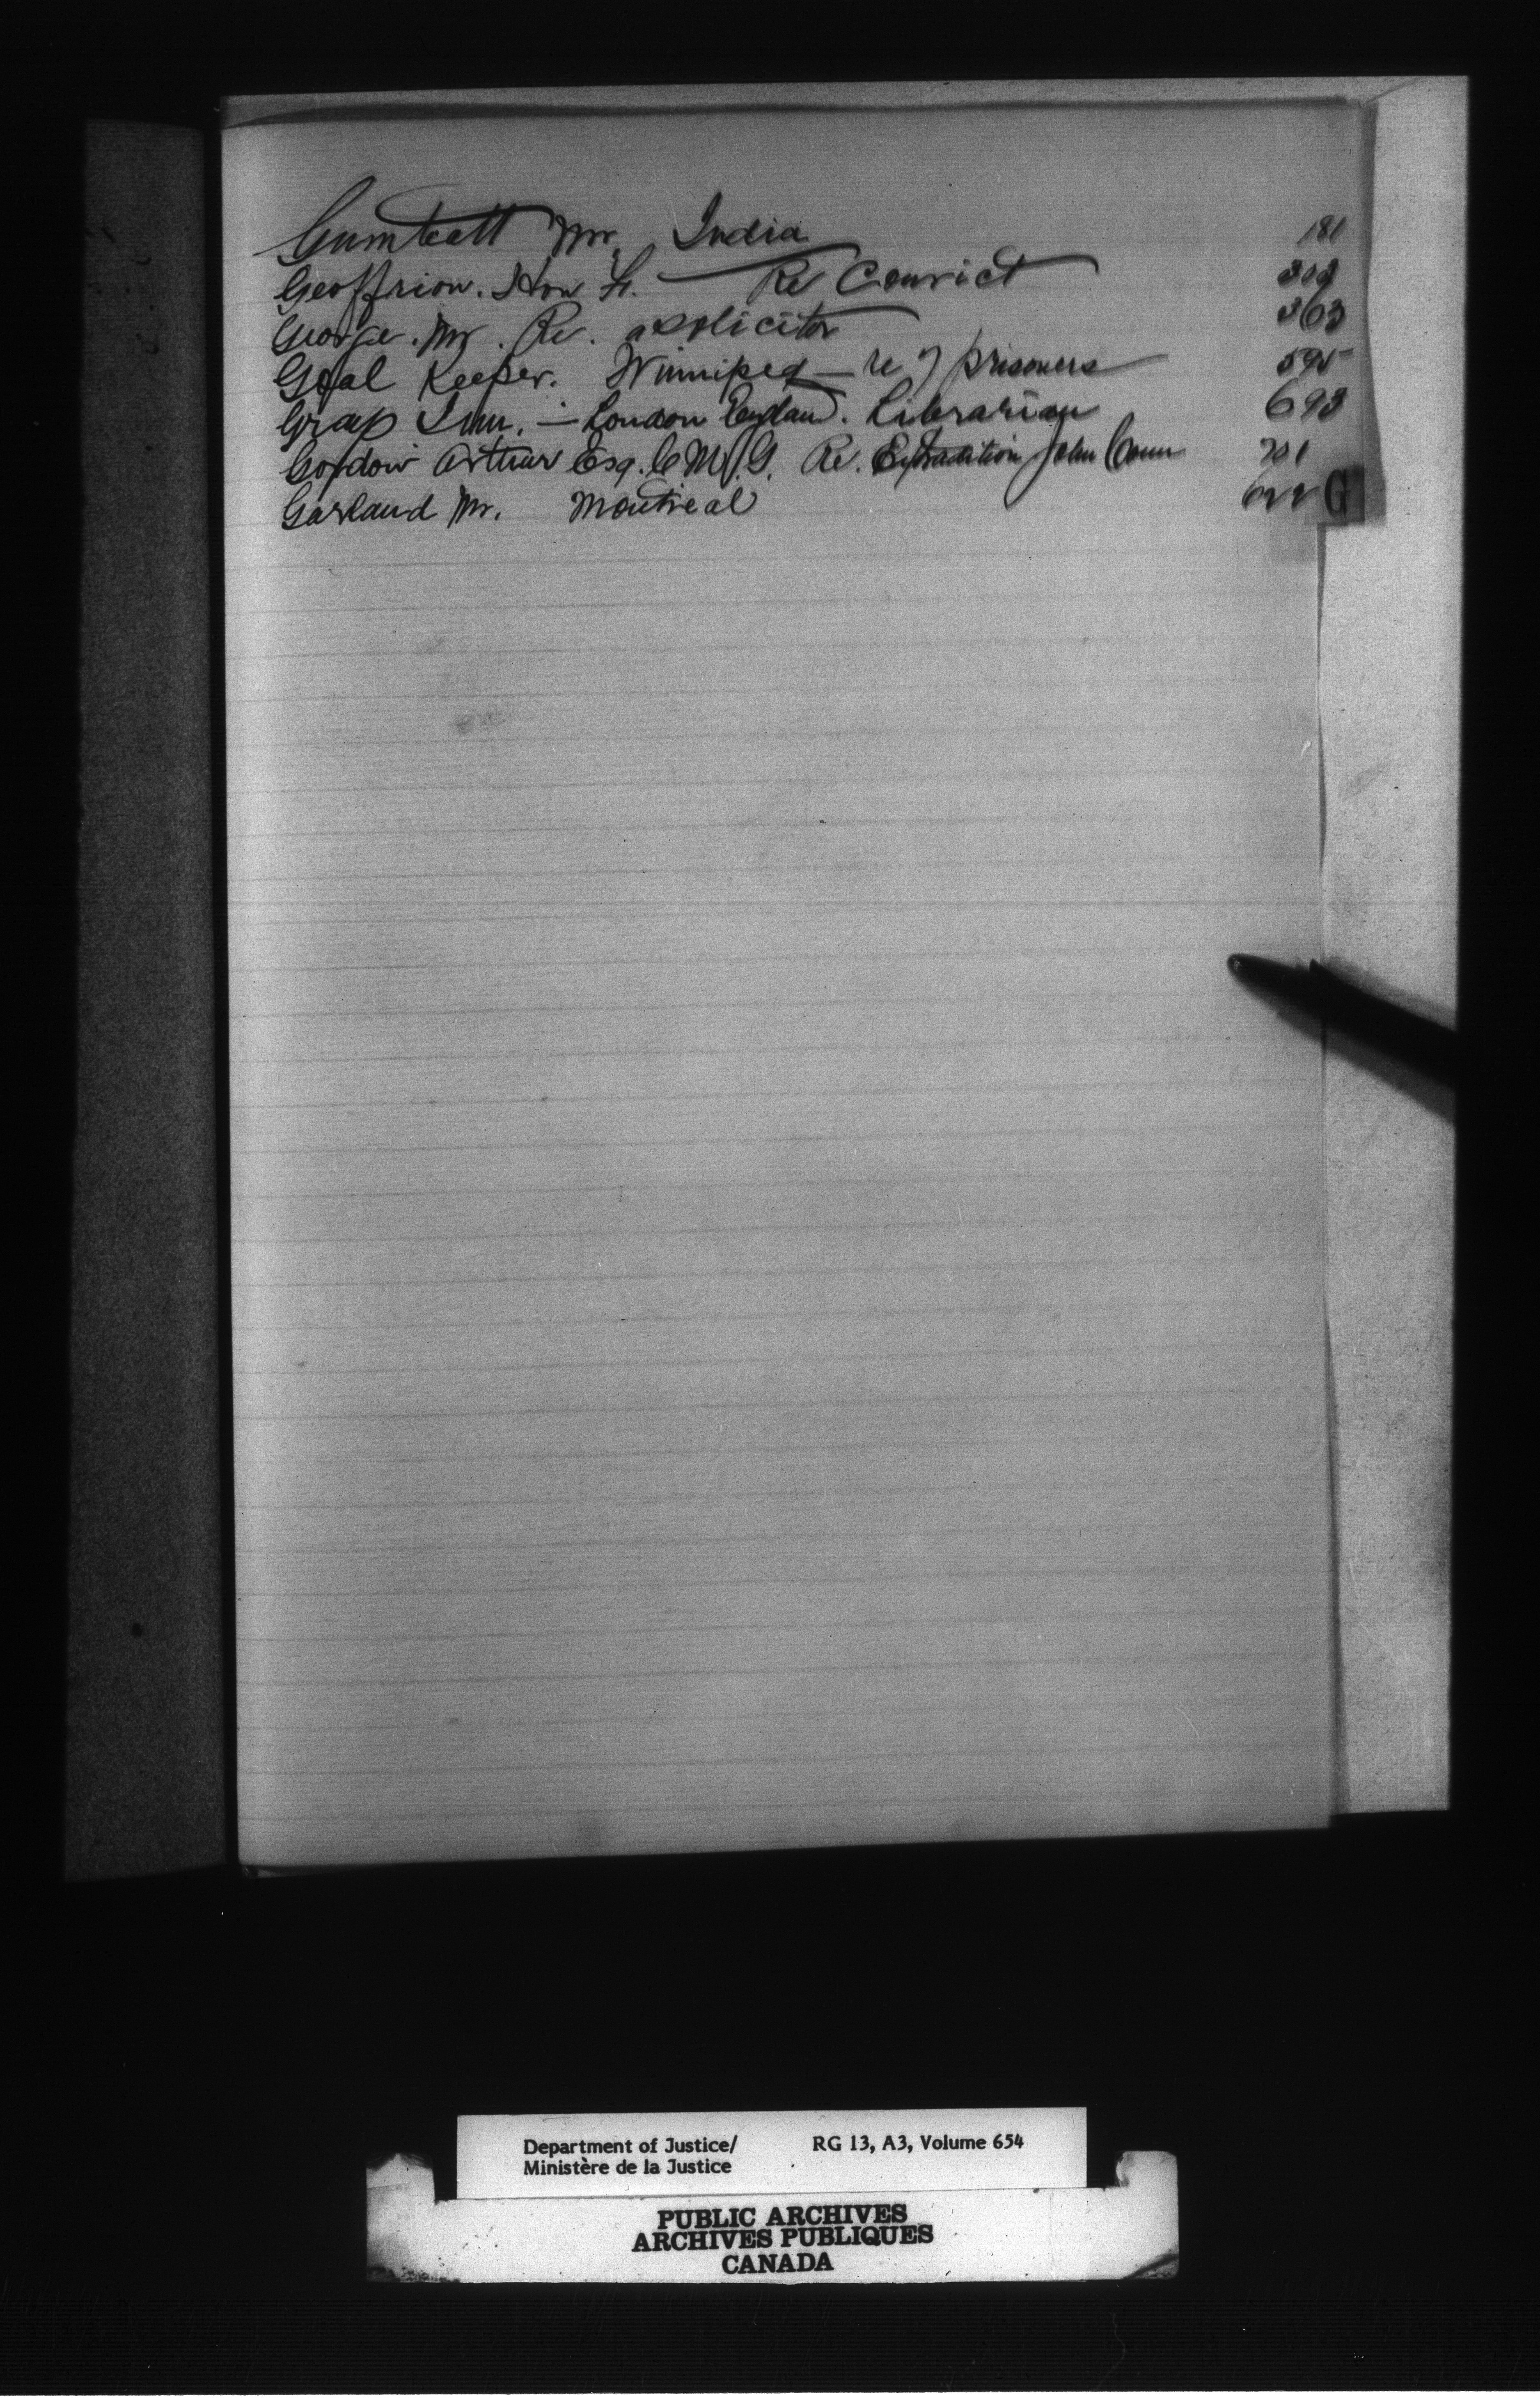 Mr. India 181
Geoffrion. Hon F. Re Convict
George. Mr. Re. a solicitor 363
Goal Keeper. Winnipeg — re 7 prisoners 595
Grays Inn. — London England. Librarian 693
Gordon Arthur Esq. C.M.G. Re. Extradition John Conn 701
Garland Mr. Montreal
G
Department of Justice/ RG 13, A3, Volume 654
Ministère de la Justice
PUBLIC ARCHIVES
ARCHIVES PUBLIQUES
CANADA